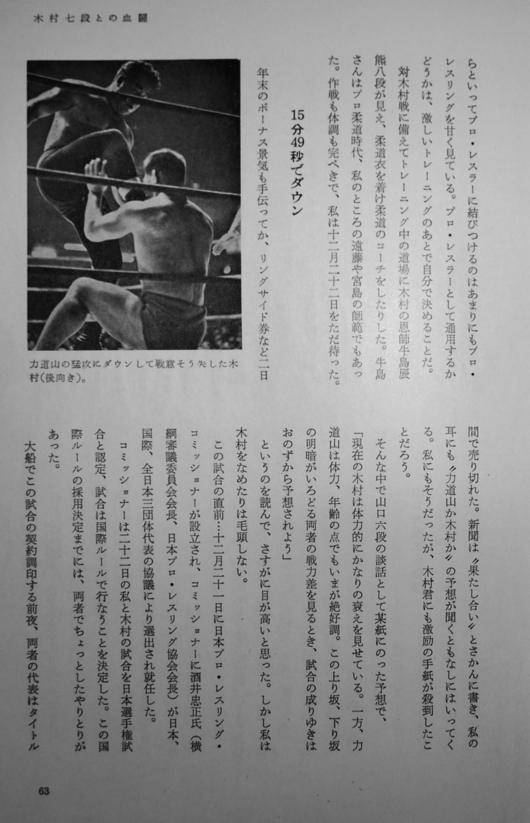 木村七段との血闘
らといってプロ・レスラーに結びつけるのはあまりにもプロ・
レスリングを甘く見ている。プロ・レスラーとして通用するか
どうかは、激しいトレーニングのあとで自分で決めることだ。
対木村戦に備えてトレーニング中の道場に木村の恩師牛島辰
熊八段が見え、柔道衣を着け柔道のコーチをしたりした。牛島
さんはプロ柔道時代、私のところの遠藤や宮島の師範でもあっ
た。作戦も体調も完ぺきで、私は十二月二十二日をただ待った。
15分49秒でダウン
年末のボーナス景気も手伝ってか、リングサイド券など二日
力道山の猛攻にダウンして戦意そう失した木
村(後向き)。
間で売り切れた。新聞は〝果たし合い〟とさかんに書き、私の
耳にも〝力道山か木村か〟の予想が聞くともなしにはいってく
る。私にもそうだったが、木村君にも激励の手紙が殺到したこ
とだろう。
そんな中で山口六段の談話として某紙にのった予想で、
「現在の木村は体力的にかなりの衰えを見せている。一方、力
道山は体力、年齢の点でもいまが絶好調。この上り坂、下り坂
の明暗がいろどる両者の戦力差を見るとき、試合の成りゆきは
おのずから予想されよう」
というのを読んで、さすがに目が高いと思った。しかし私は
木村をなめたりは毛頭しない。
この試合の直前…十二月二十一日に日本プロ・レスリング・
コミッショナーが設立され、コミッショナーに酒井忠正氏(横
綱審議委員会会長、日本プロ・レスリング協会会長)が日本、
国際、全日本三団体代表の協議により選出され就任した。
コミッショナーは二十二日の私と木村の試合を日本選手権試
合と認定、試合は国際ルールで行なうことを決定した。この国
際ルールの採用決定までには、両者でちょっとしたやりとりが
あった。
大船でこの試合の契約調印する前夜、両者の代表はタイトル
63